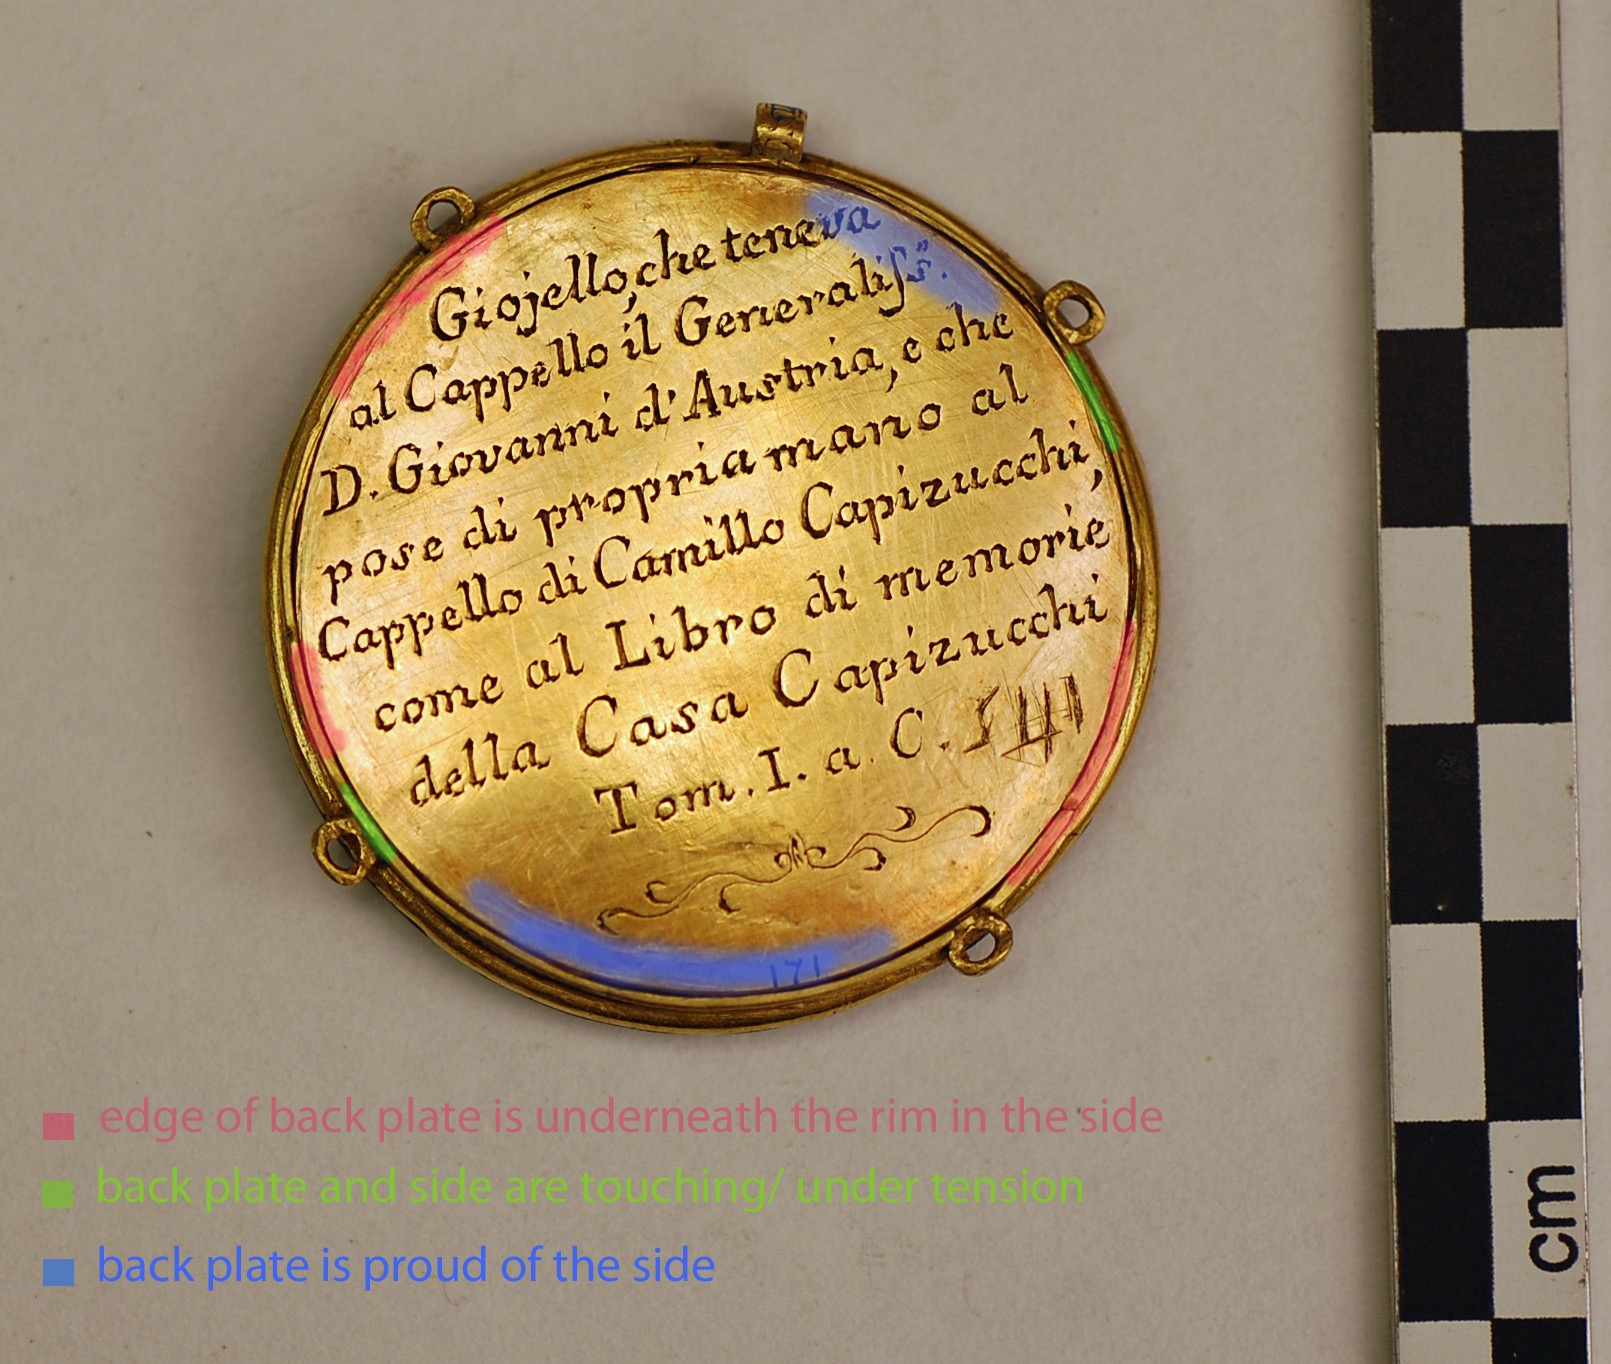 Giojello, che teneva
al Cappello il Generaliſs.
D. Giovanni d'Austria, e che
pose di propria mano al
Cappello di Camillo Capizucchi,
come al Libro di memorie
della Casa Capizucchi
Tom. I. a C.
171
edge of back plate is underneath the rim in the side
back plate and side are touching/ under tension
back plate is proud of the side
cm